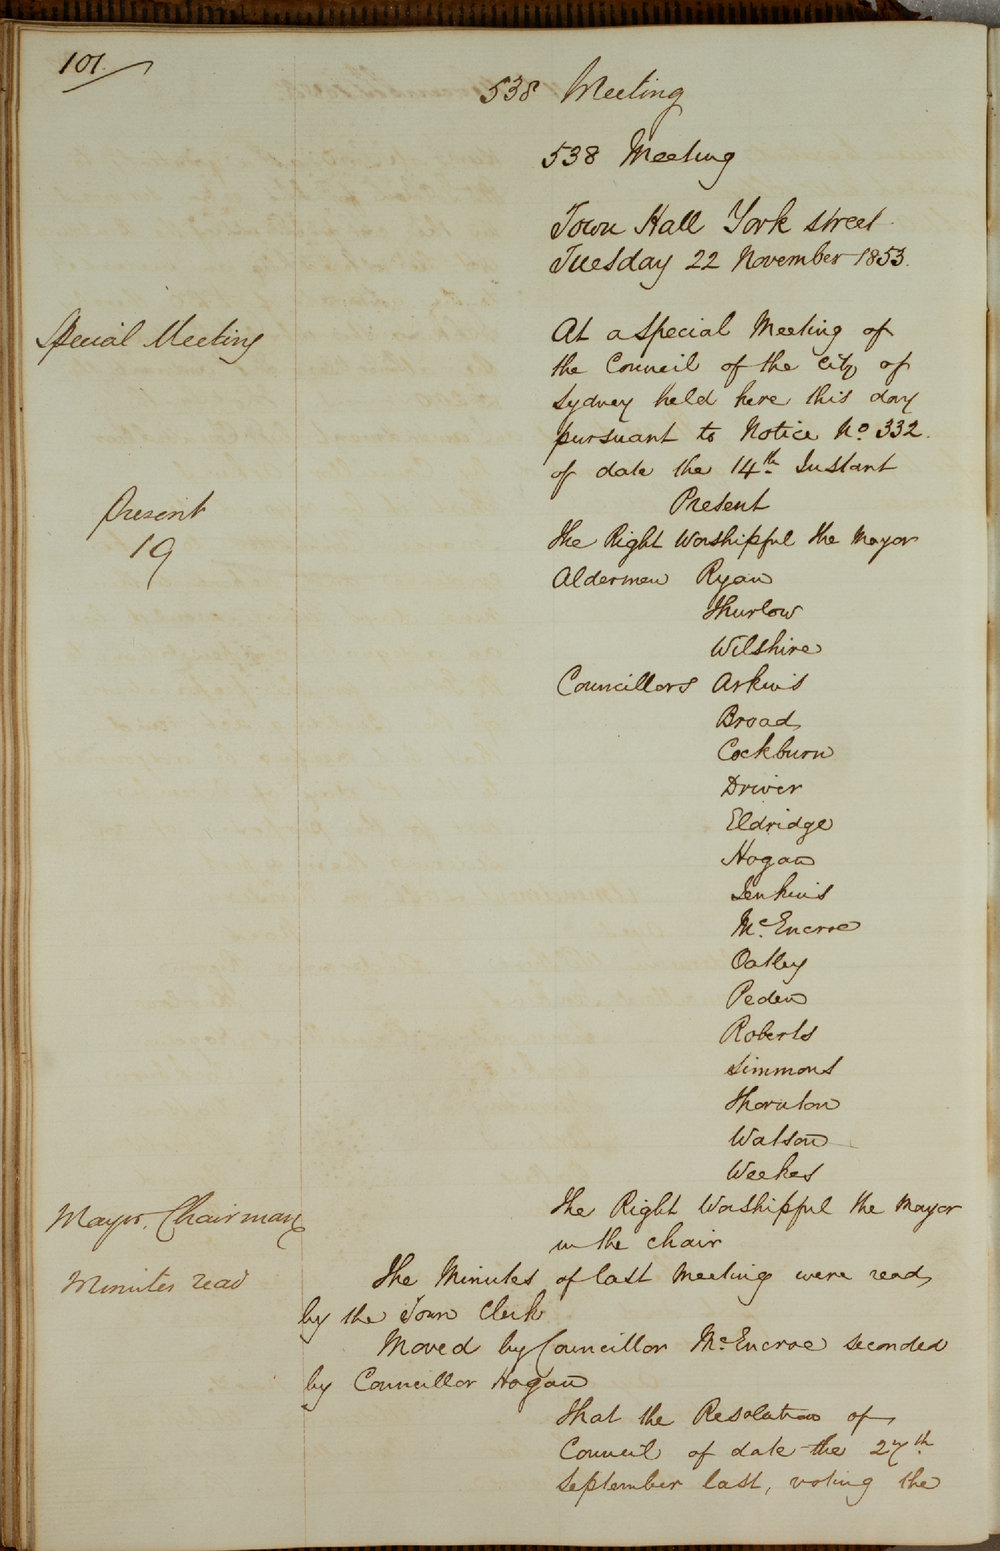 101.
538 Meeting
538 Meeting
Town Hall York street
Tuesday 22 November 1853.
Special Meeting
At a Special Meeting of
the Council of the City of
Sydney held here this day
pursuant to Notice No. 332.
of date the 14th Instant
Present
19
Present
The Right Worshipful the Mayor
Aldermen Ryan
Thurlow
Wilshire
Councillors Askins
Broad
Cockburn
Driver
Eldridge
Hogan
Jenkins
McEncroe
Oatley
Peden
Roberts
Simmons
Thornton
Watson
Weekes
Mayor, Chairman
The Right Worshipful the Mayor
in the chair
Minutes read
The Minutes of last Meeting were read
by the Town Clerk
Moved by Councillor McEncroe seconded
by Councillor Hogan
That the Resolution of
Council of date the 27th
September last, voting the